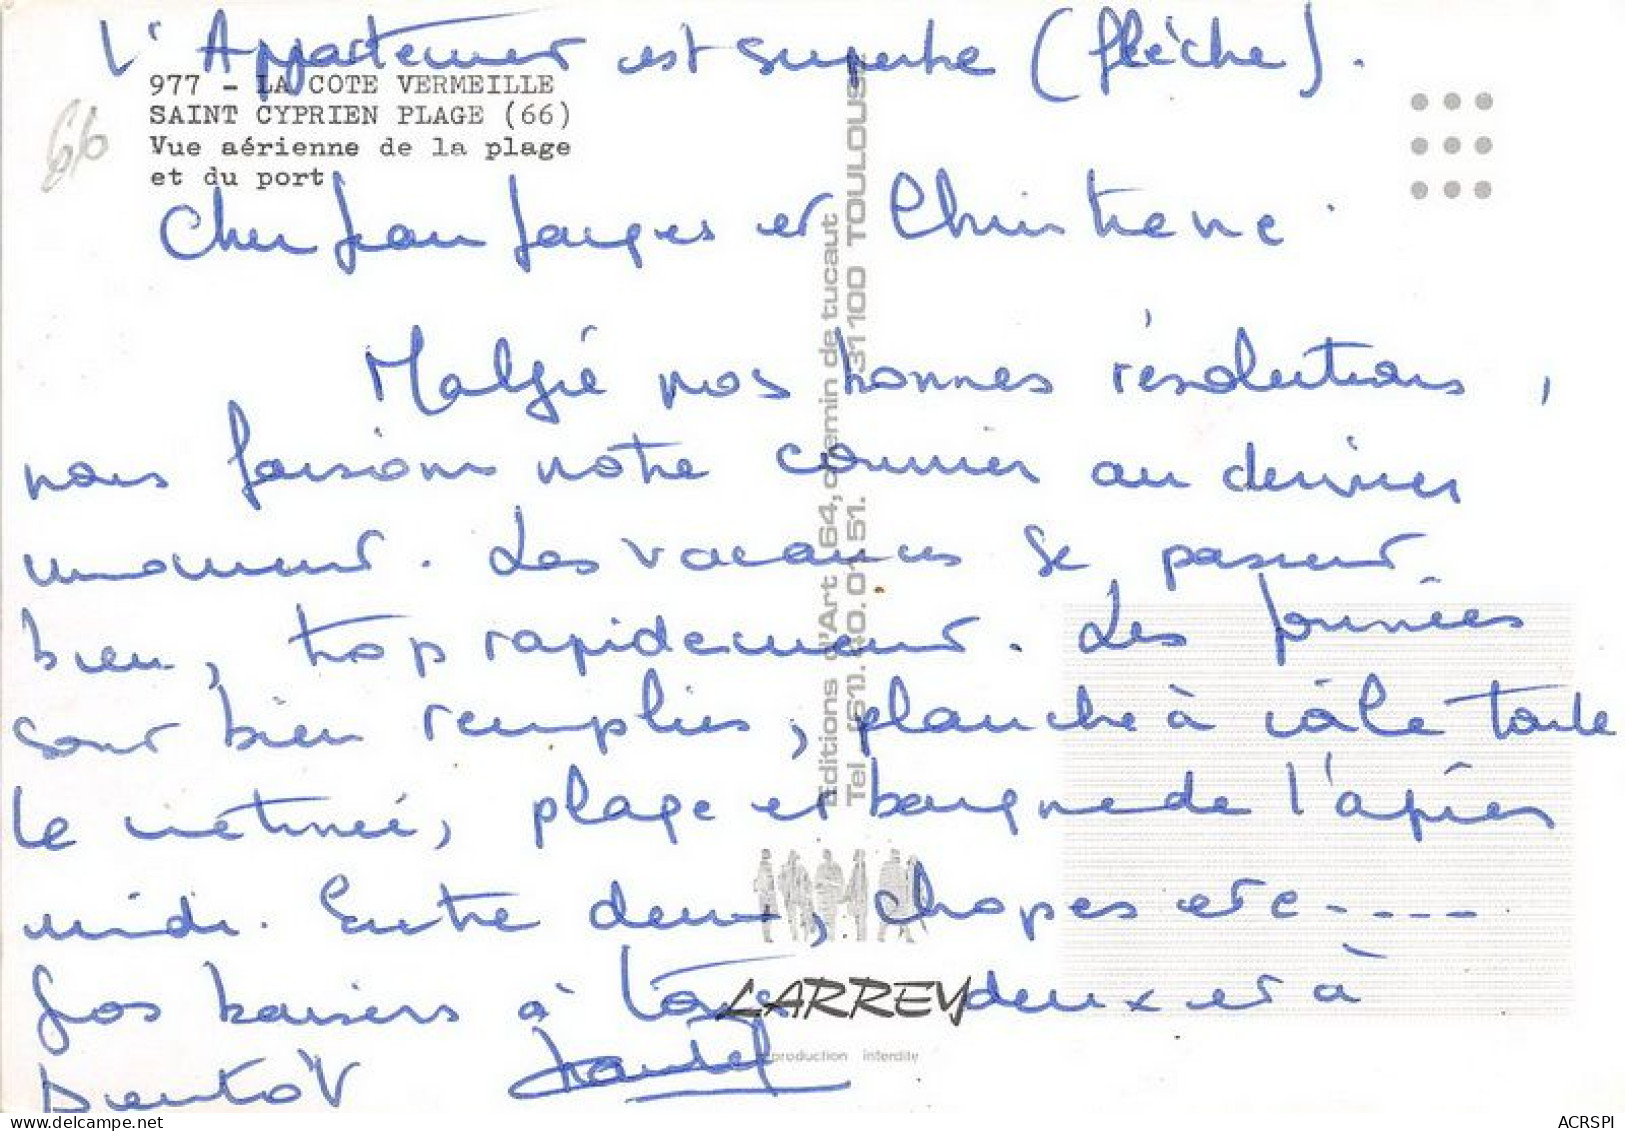 L'Appartement est superbe (flèche).
977 - LA COTE VERMEILLE
SAINT CYPRIEN PLAGE (66)
Vue aérienne de la plage
et du port
66
Cher Jean Jacques et Christiane.
Malgré nos bonnes résolutions,
nous faisons notre courrier au dernier
moment. Les vacances se passent
bien, trop rapidement. Les journées
sont bien remplies, planche à voile toute
la matinée, plage et baignade l'après
midi. Entre deux, chopes etc-----
Gros baisers à tous deux et à
bientôt
Editions d'Art 64, chemin de tucaut
Tel (61). 40.01.51. 31100 TOULOUSE
LARREY
reproduction interdite
ACRSPI